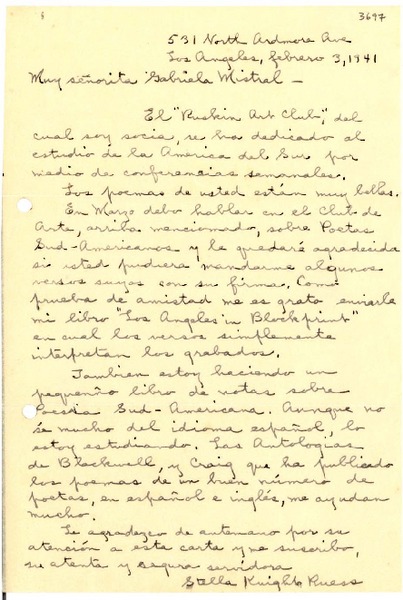 3697
531 North Ardmore Ave
Los Angeles, febrero 3, 1941
Muy señorita Gabriela Mistral —
El "Ruskin Art Club", del
cual soy socia, se ha dedicado al
estudio de la America del Sur por
medio de conferencias semanales.
Los poemas de usted están muy bellos.
En Marzo debo hablar en el Club de
Arte, arriba mencionado, sobre Poetas
Sud-Americanos y le quedaré agradecida
si usted pudiera mandarme algunos
versos suyos con su firma. Como
prueba de amistad me es grato enviarle
mi libro "Los Angeles in Blockprint"
en cual los versos simplemente
interpretan los grabados.
Tambien estoy haciendo un
pequeño libro de notas sobre
Poesia Sud-Americana. Aunque no
sé mucho del idioma español, lo
estoy estudiando. Las Antologías
de Blackwell, y Craig que ha publicado
los poemas de un buen número de
poetas, en español e inglés, me ayudan
mucho.
Le agradezco de antemano por su
atención a esta carta y me suscribo,
su atenta y segura servidora
Stella Knight Ruess